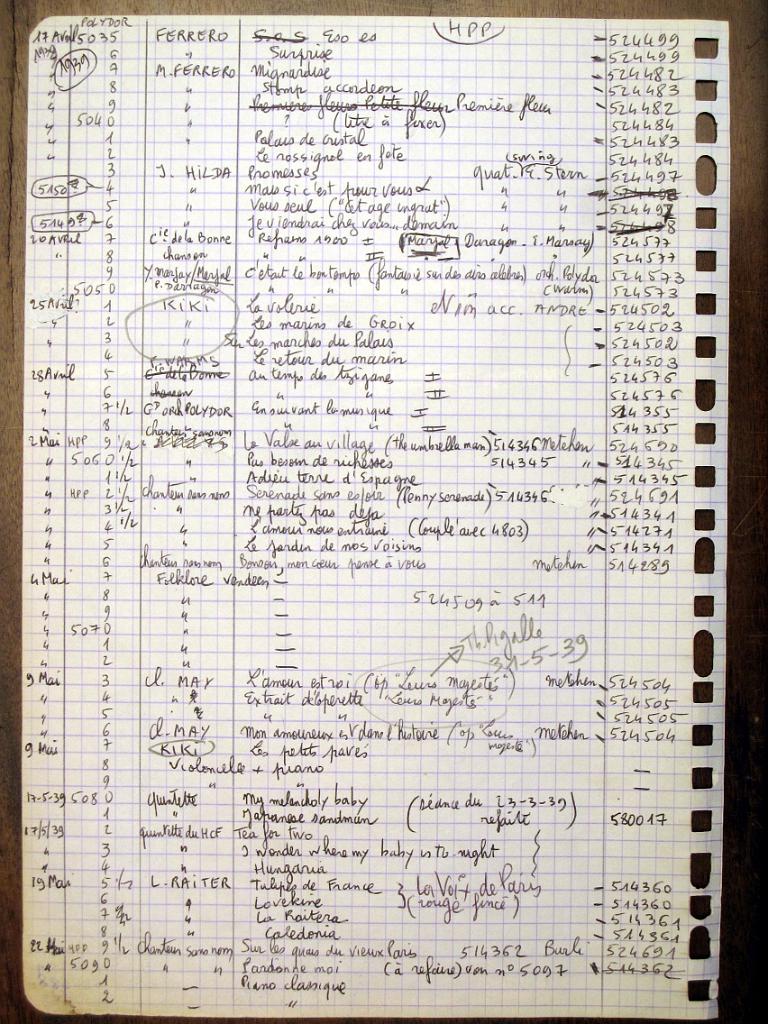 POLYDOR HPP
17 Avril 5035 FERRERO S.O.S Eso es 524499
1939 6 " Surprise 524499
1939 7 M. FERRERO Mignardise 524482
" 8 " Stomp accordeon 524483
" 9 " Premières fleurs Petite fleur Première fleur 524482
" 5040 " ? (titre à fixer) 524484
" 1 " Palais de cristal 524483
" 2 " Le rossignol en fête 524484
" 3 J. HILDA Promesses quat. E. Stern (swing) 524497
5150 4 " Mais si c'est pour vous " " 524498
" 5 " Vous seul ("Cet age ingrat") " " 524497
5149 6 " Je viendrai chez vous demain " " 524498
20 Avril 7 Cie de la Bonne Refrains 1900 I (Marjal Daragon - E. Marsay) 524577
" 8 chanson " " II 524577
9 Y. Marjay/Merjal C'était le bon temps (fantaisie sur des airs célèbres) orch. Polydor 524573
5050 P. Darragon " " " (Warms) 524573
25 Avril 1 KIKI La volerie Non acc. ANDRE 524502
" 2 " Les marins de GROIX 524503
" 3 " Sur Les marches du Palais 524502
4 Le retour du marin 524503
28 Avril 5 F. WARMS Cie de la Bonne Au temps des tziganes I 524576
" 6 chanson " " II 524576
" 7 1/2 Gd orch POLYDOR En suivant la musique I 514355
" 8 " " II 514355
2 Mai HPP 9 1/2 chanteur sans nom La Valse au village (the umbrella man) 514346 Metchen 524690
" 5060 1/2 " Pas besoin de richesses 514345 " 514345
" 1 1/2 " Adieu terre d'Espagne 514345
" HPP 2 1/2 chanteur sans nom Serenade sans espoir (Penny serenade) 514346 " 524691
" 3 1/2 " Ne partez pas déjà " 514341
" 4 1/2 L'amour nous entraine (Couplé avec 4803) " 514271
" 5 " Le jardin de nos voisins " 514341
" 6 chanteur sans nom Bonsoir, mon coeur pense à vous metchen 514289
4 Mai 7 Folklore vendeen —
" 8 " — 524509 à 511
" 9 " —
" 5070 " —
" 1 " —
" 2 " —
Th. Pigalle
31-5-39
9 Mai 3 Cl. MAY L'amour est roi (op "Leurs majestés") metchen 524504
" 4 " Extrait d'operette "Leurs Majestés" 524505
" 5 " " " 524505
" 6 Cl. MAY Mon amoureux est dans l'histoire (op "Leurs majestés") Metchen 524504
9 Mai 7 KIKI Les petits pavés
8 Violoncelle + piano —
9 " " —
17-5-39 5080 quintette My melancholy baby (séance du 23-3-39
" 1 " Japanese sandman refaite) 580017
17/5/39 2 quintette du HCF Tea for two
" 3 " I wonder where my baby is to night
" 4 " Hungaria
19 Mai 5 1/2 L. RAITER Tulipes de France La Voix de Paris 514360
" 6 " Lovekine (rouge foncé) 514360
" 7 1/2 " La Raitera 514361
" 8 " Caledonia 514361
22 Mai HPP 9 1/2 chanteur sans nom Sur les quais du vieux Paris 514362 Burli 524691
" 5090 " " Pardonne moi (à refaire) von n° 5097 514362
" 1 — Piano classique
" 2 — "